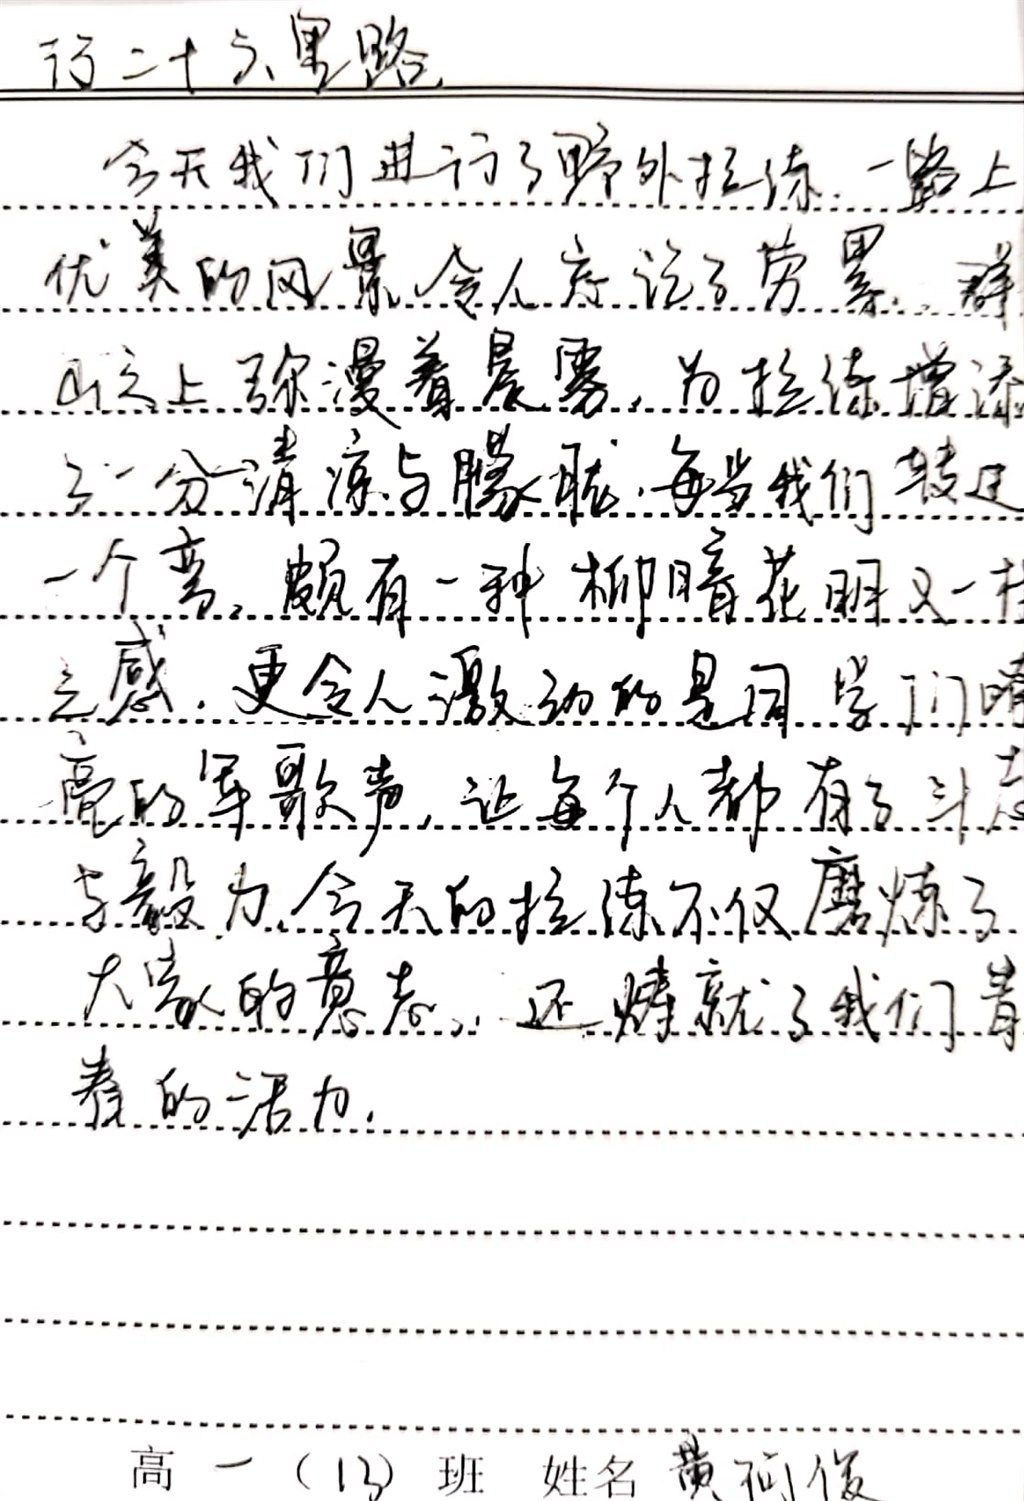 行二十六里路
今天我们进行了野外拉练.一路上
优美的风景令人忘记了劳累.群
山之上弥漫着晨雾,为拉练增添
了一分清凉与朦胧.每当我们转过
一个弯,颇有一种柳暗花明又一村
之感.更令人激动的是同学们嘹
亮的军歌声,让每个人都有了斗志
与毅力.今天的拉练不仅磨炼了
大家的意志,还铸就了我们青
春的活力.
高一(13)班 姓名 黄